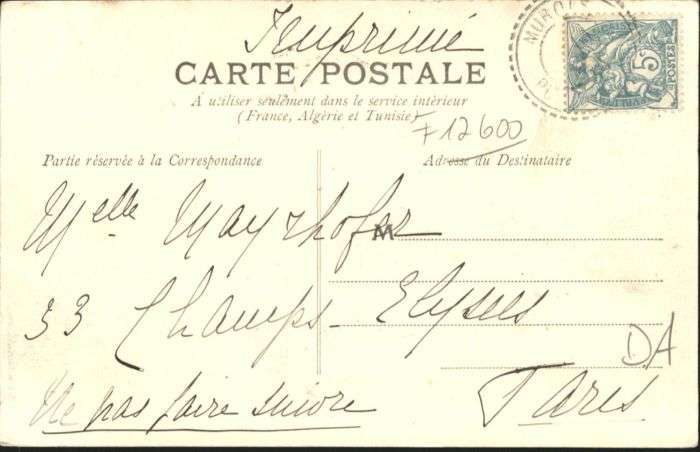 Imprimé
CARTE POSTALE
A utiliser seulement dans le service intérieur
(France, Algérie et Tunisie)
F 12600
5c
POSTES
Partie réservée à la Correspondance
Adresse du Destinataire
Melle Mayrhofer
M
33 Champs-Elysées
Paris
DA
Ne pas faire suivre